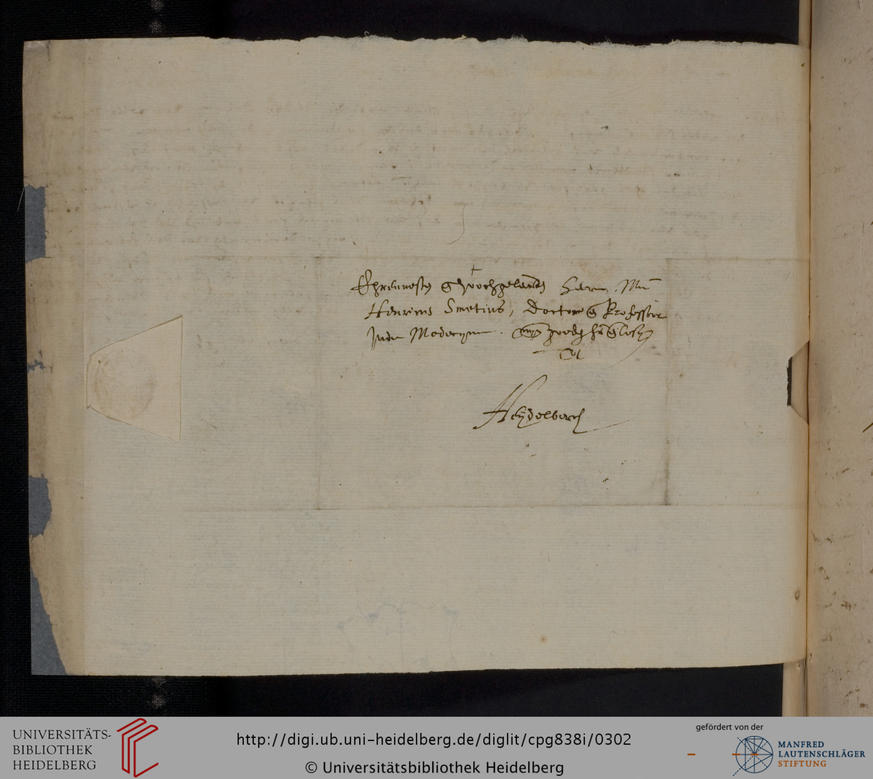 Ehrnvesten Hochgelerten Herrn
Henricus Smetius, Doctor Professor
Inde Medecyn.
Tot
Heydelberch
UNIVERSITÄTS-
BIBLIOTHEK
HEIDELBERG
http://digi.ub.uni-heidelberg.de/diglit/cpg838i/0302
© Universitätsbibliothek Heidelberg
gefördert von der
MANFRED
LAUTENSCHLÄGER
STIFTUNG